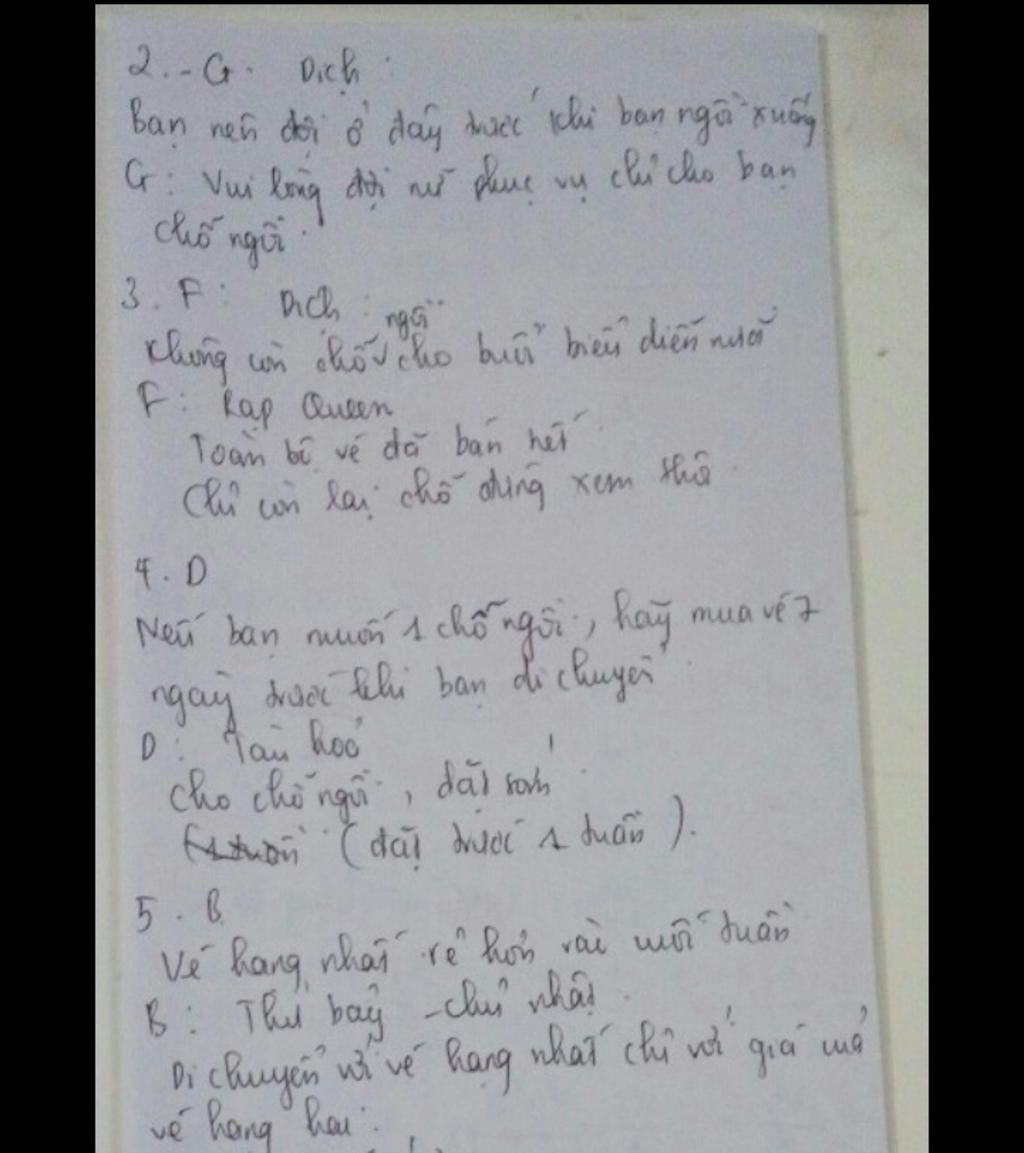 2.-G. Dịch:
Bạn nên đợi ở đây trước khi bạn ngồi xuống
G: Vui lòng đợi nữ phục vụ chỉ cho bạn
chỗ ngồi.
3. F: Dịch:
Không còn chỗ ngồi cho buổi biểu diễn nữa
F: Rạp Queen
Toàn bộ vé đã bán hết
Chỉ còn lại chỗ đứng xem thôi.
4. D
Nếu bạn muốn 1 chỗ ngồi, hãy mua vé 7
ngày trước khi bạn di chuyển
D: Tàu hoả
Cho chỗ ngồi, đặt sớm
(đặt trước 1 tuần).
5. B
Vé hạng nhất rẻ hơn vào cuối tuần
B: Thứ bảy - chủ nhật.
Di chuyển với vé hạng nhất chỉ với giá của
vé hạng hai.